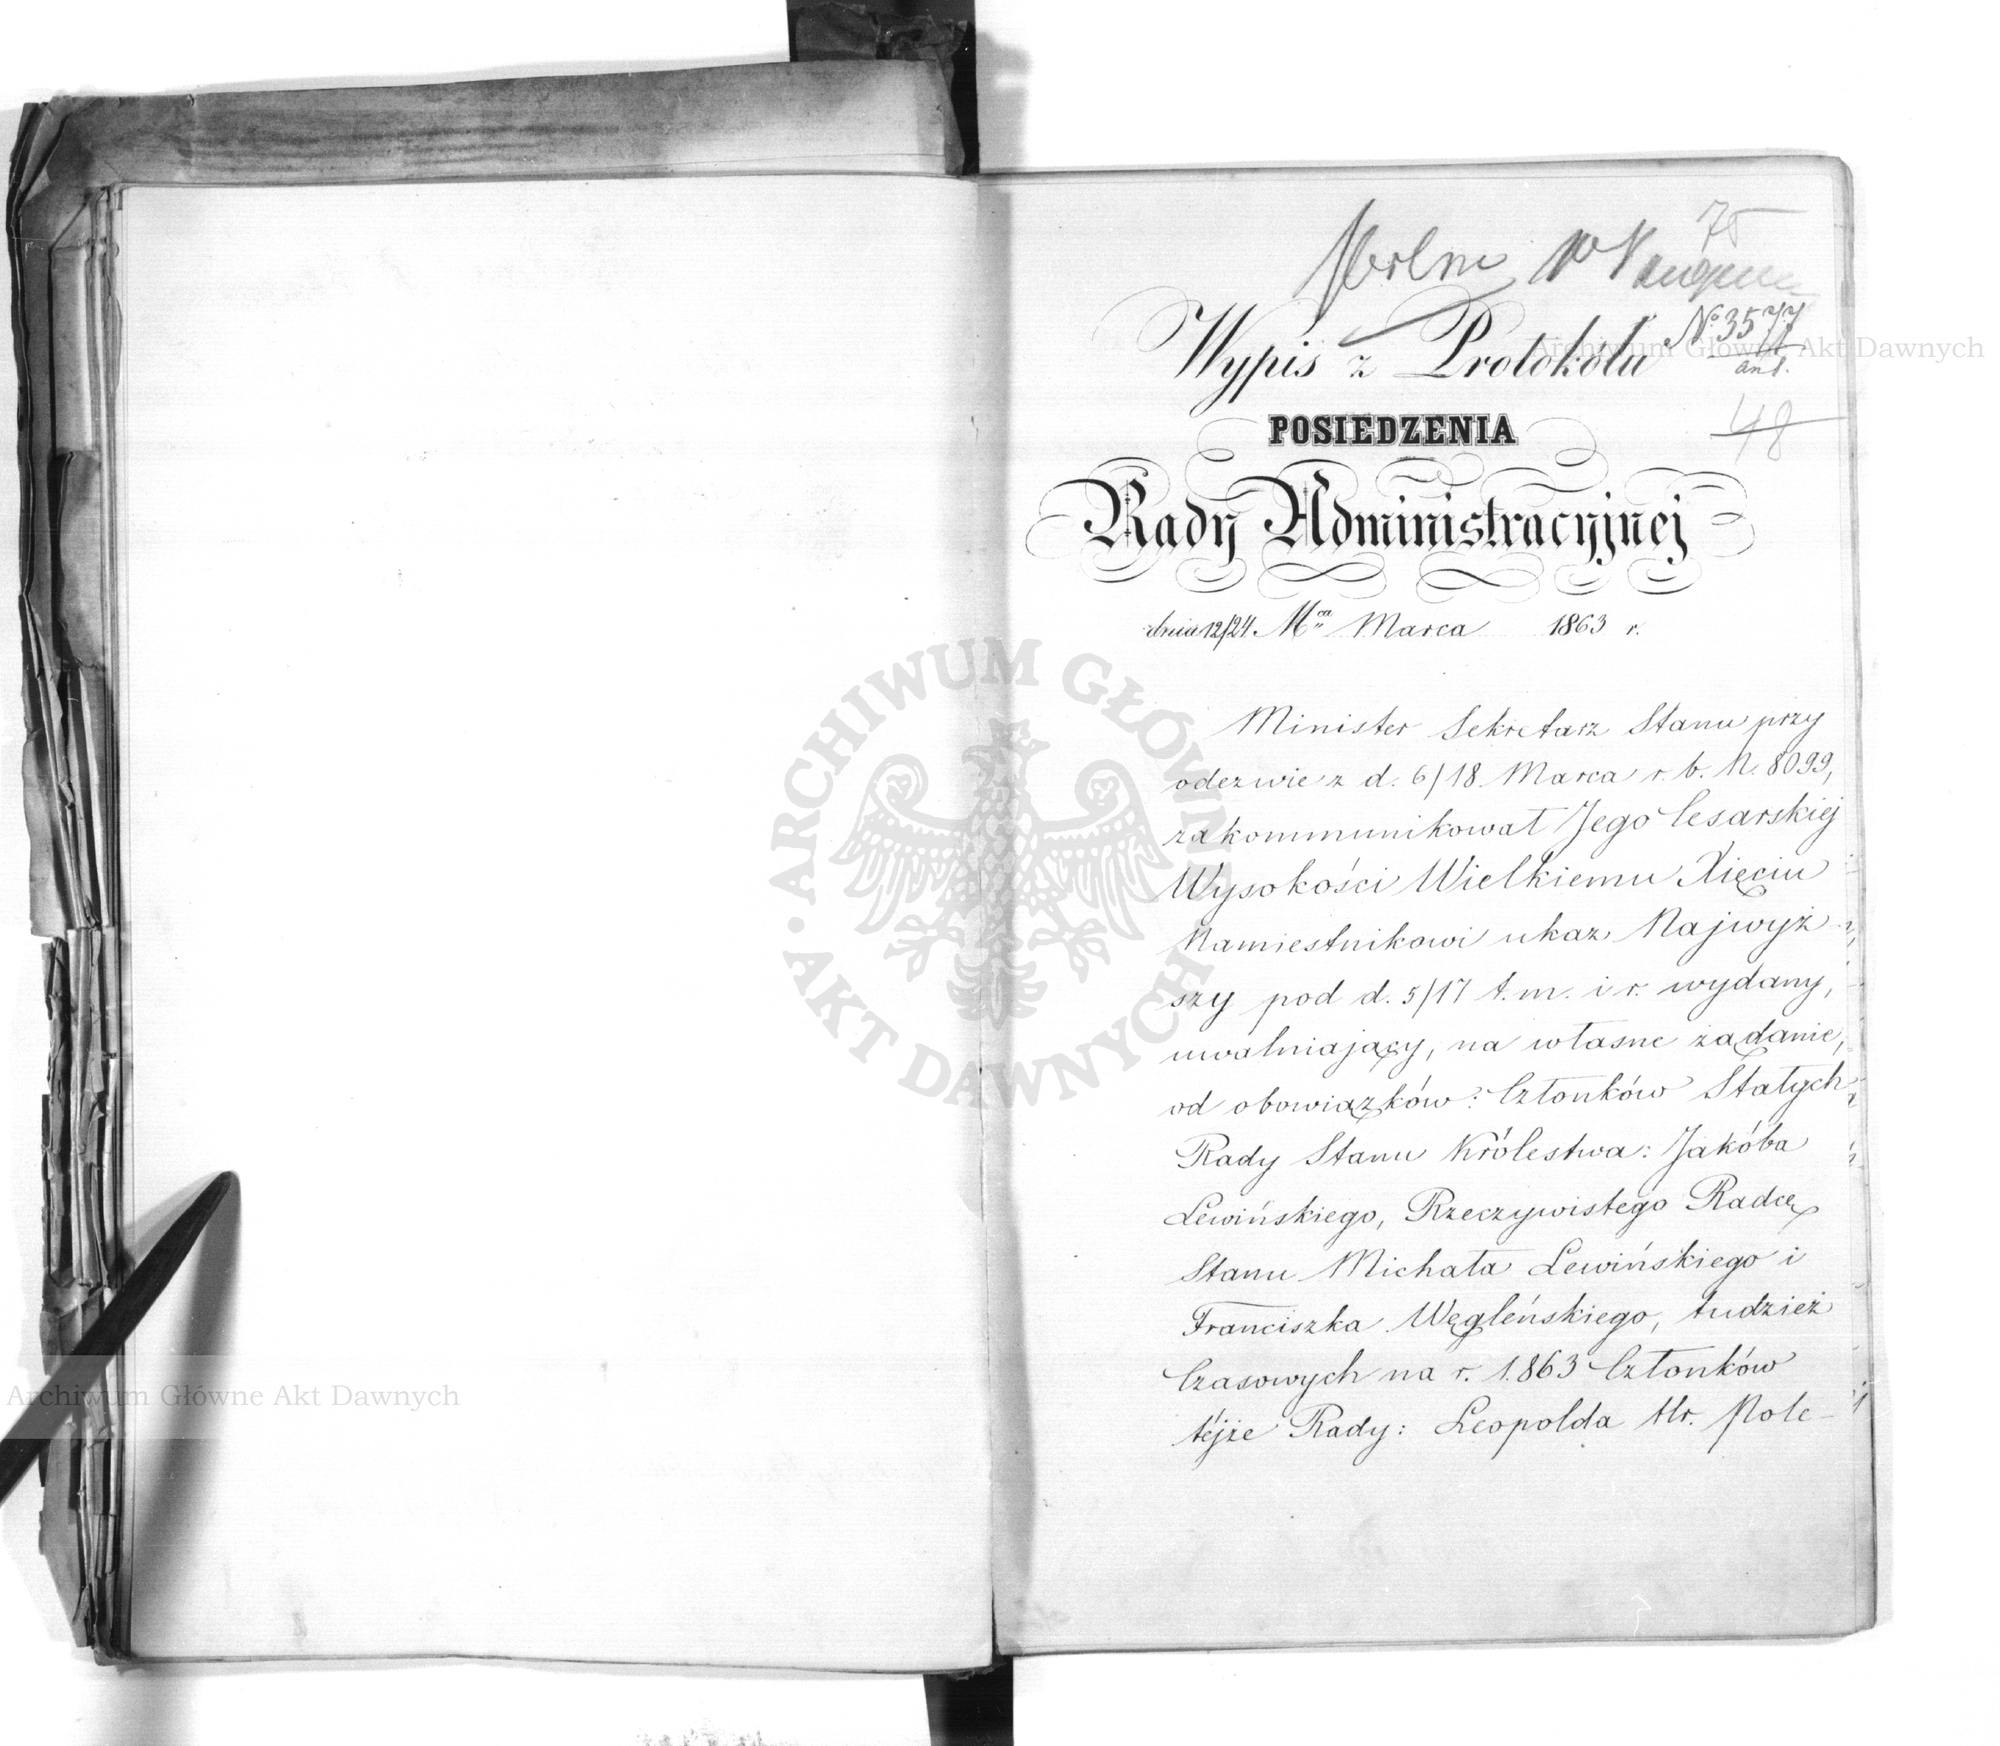 75
Wypis z Protokółu
N° 3577
48
POSIEDZENIA
Rady Administracyjnej
dnia 12/24 Mca Marca 1863 r.
Minister Sekretarz Stanu przy
odezwie z d. 6/18 Marca r. b. N. 8099,
zakommunikował Jego Cesarskiej
Wysokości Wielkiemu Xięciu
Namiestnikowi ukaz Najwyż-
szy pod d. 5/17 t. m. i r. wydany,
uwalniający, na własne żądanie,
od obowiązków: Członków Stałych
Rady Stanu Królestwa: Jakóba
Lewińskiego, Rzeczywistego Radcę
Stanu Michała Lewińskiego i
Franciszka Węgleńskiego, tudzież
Czasowych na r. 1863 Członków
téjże Rady: Leopolda Hr. Pole-
ARCHIWUM GŁÓWNE
AKT DAWNYCH
Archiwum Główne Akt Dawnych
Archiwum Główne Akt Dawnych